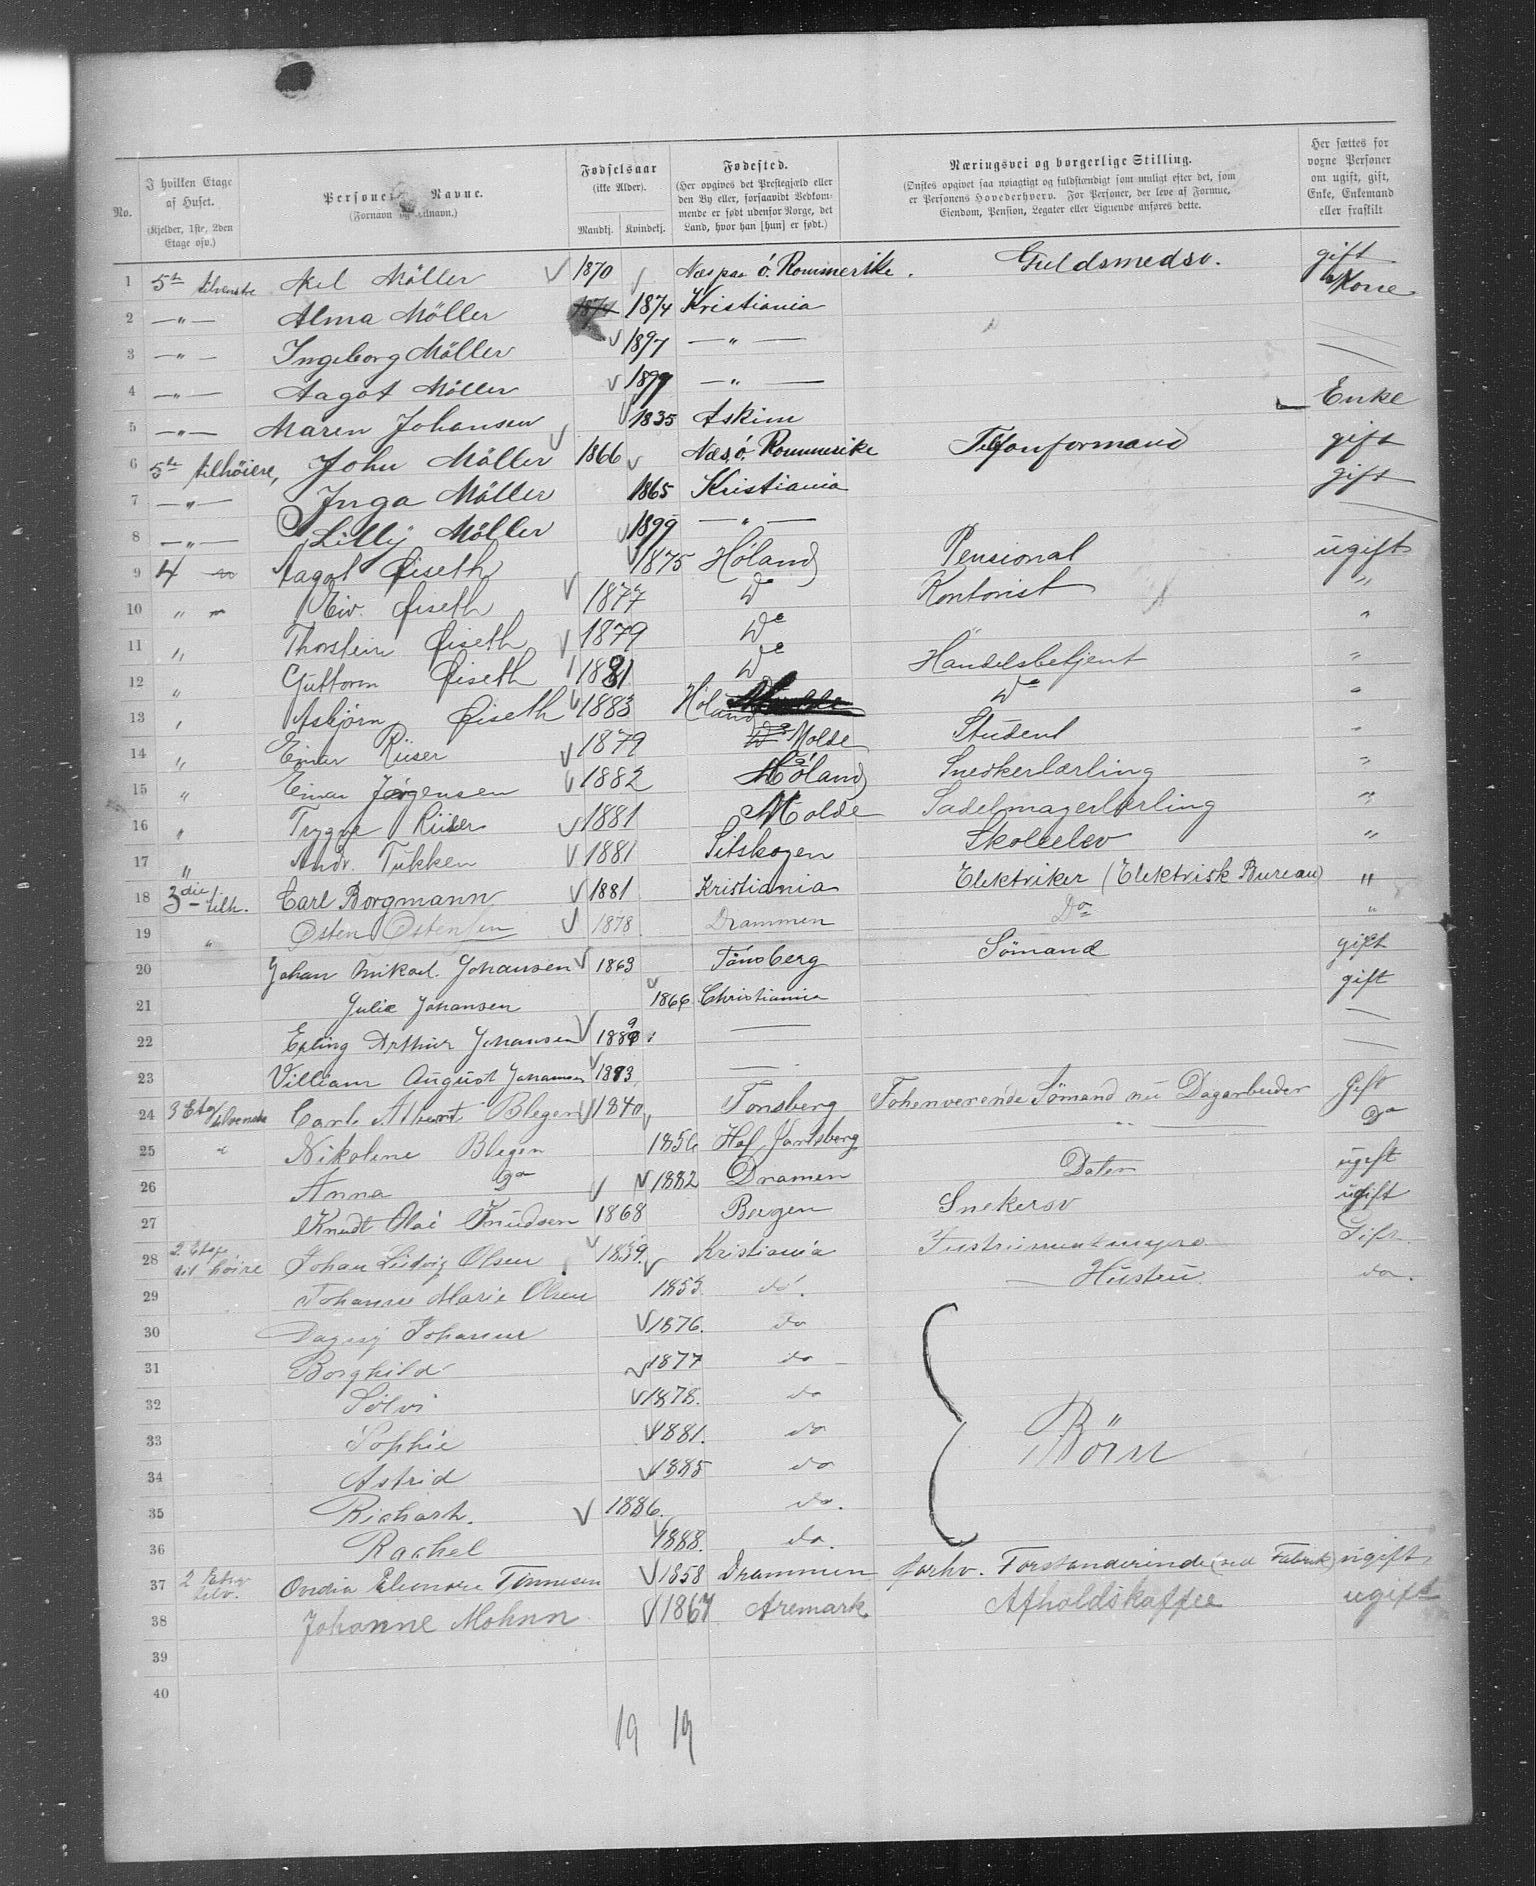 No. | I hvilken Etage af Huset. (Kjelder, 1ste, 2den Etage osv.) | Personernes Navne. (Fornavn og Tilnavn.) | Fødselsaar (ikke Alder). Mandkj. Kvindekj. | Fødested. (Her opgives det Prestegjæld eller den By eller, forsaavidt Vedkommende er født udenfor Norge, det Land, hvor han [hun] er født.) | Næringsvei og borgerlige Stilling. (Ønskes opgivet saa nøiagtigt og fuldstændigt som muligt efter det, som er Personens Hovederhverv. For Personer, der leve af Formue, Eiendom, Pension, Legater eller Lignende anføres dette. | Her sættes for voxne Personer om ugift, gift, Enke, Enkemand eller fraskilt
1 5te tilvenstre Axel Möller 1870 Næs paa Ö. Rommerike. Guldsmedsv. gift
2 —"— Alma Möller 1874 1874 Kristiania Kone
3 —"— Ingeborg Möller 1897 —"—
4 —"— Aagot Möller 1899 —"—
5 —"— Maren Johansen 1835 Askim Enke
6 5te tilhöire, John Möller 1866 Næs, ö. Rommerike Telefonformand gift
7 —"— Inga Möller 1865 Kristiania gift
8 —"— Lilly Möller 1899 —"—
9 4 Aagot Øiseth 1875 Höland Pensionat ugift
10 " Eiv. Øiseth 1877 Do Kontorist "
11 " Thorstein Øiseth 1879 Do "
12 " Guttorm Øiseth 1881 Do Handelsbetjent "
13 " Asbjørn Øiseth 1883 Höland Do "
14 " Einar Riiser 1879 Do Molde Student "
15 " Einar Jörgensen 1882 Höland Snedkerlærling "
16 " Trygve Riiser 1881 Molde Sadelmagerlærling "
17 " Andr. Tukken 1881 Sitskogen Skoleelev "
18 3die tilh. Carl Borgmann 1881 Kristiania Elektriker (Elektrisk Bureau) "
19 " Østen Østensen 1878 Drammen Do "
20 Johan Mikael Johansen 1863 Tönsberg Sömand gift
21 Julie Johansen 1866 Christiania gift
22 Erling Arthur Johansen 1889 —
23 Villiam August Johansen 1893 —
24 3 Etage tilvenstre Carl Albert Blegen 1840 Tonsberg Fohenverende Sömand nu Dagarbeider Gift
25 " Nikoline Blegen 1856 Hof Jarlsberg " — Do
26 Anna Do 1882 Dramen Dater ugift
27 Knudt Olai Knudsen 1868 Bergen Snekersv ugift
28 2 Etage til höire Johan Ludvig Olsen 1839. Kristiania Gift.
29 Johanne Marie Olsen 1853 do. Hustru do.
30 Dagny Johanne 1876. do
31 Borghild 1877 do
32 Sölvi 1878. do
33 Sophie 1881. do Börn
34 Astrid 1885 do
35 Richart. 1886. do.
36 Rachel 1888. do.
37 2 Etage tilv. Ovidia Eleonore Tönnesen 1858 Drammen forhv. Forstanderinde (ved Fabrik) ugift
38 Johanne Mohnn 1867 Aremark Afholdskaffee ugift
39
40
19 19